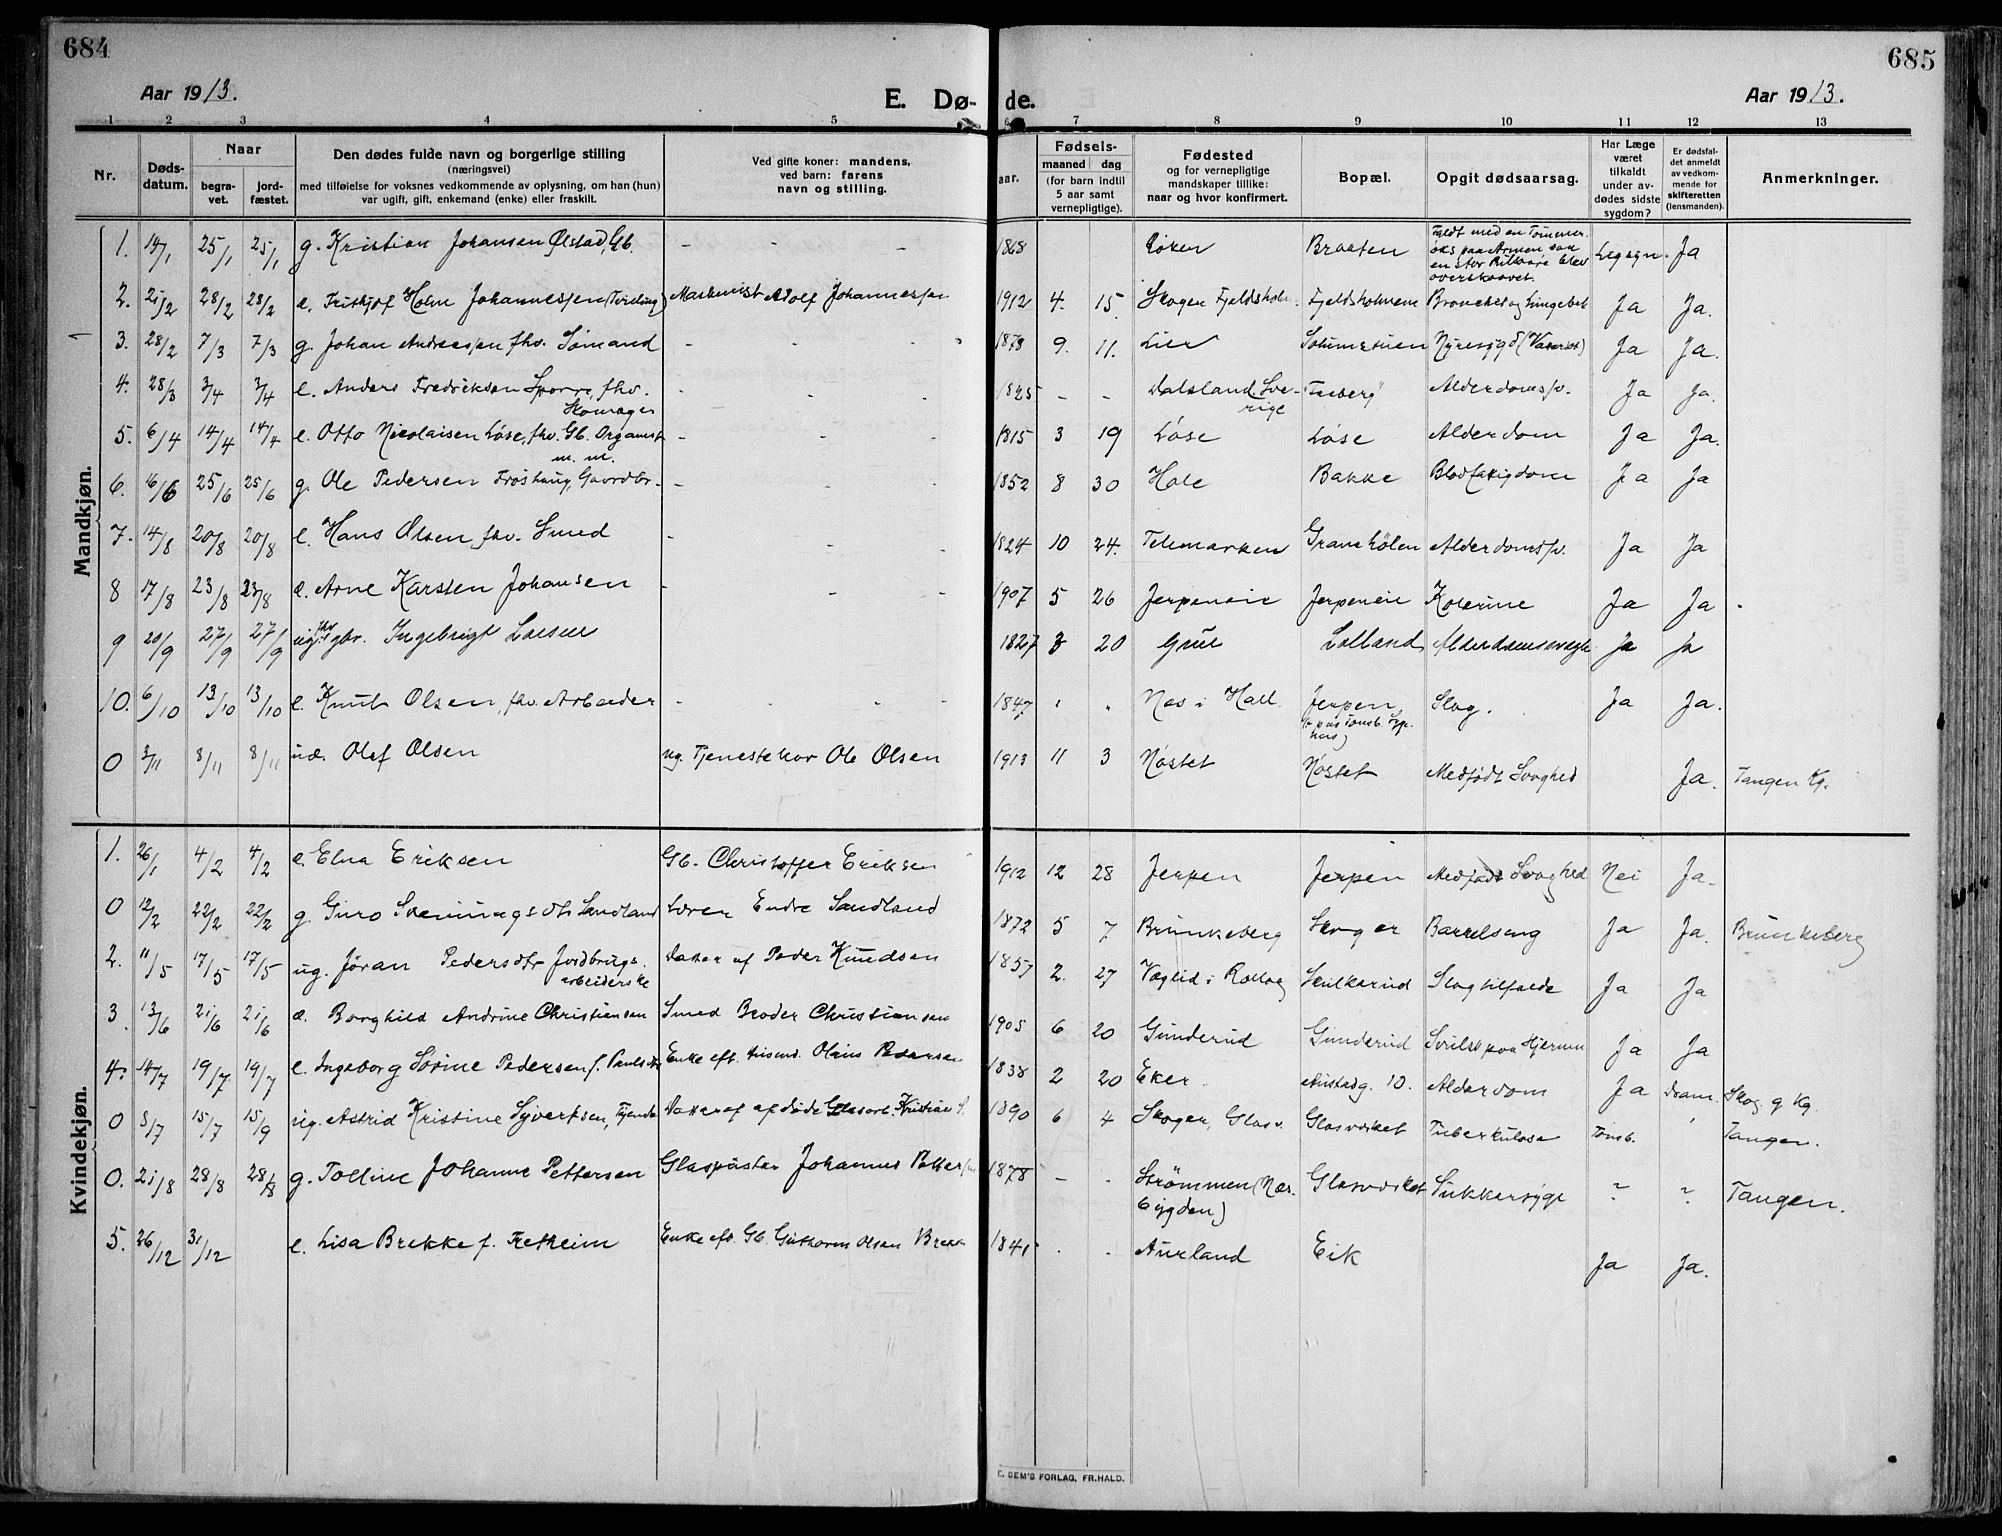 684
685
Aar 1913.
E. Døde.
Aar 1913.
1 2 3 4 5 6 7 8 9 10 11 12 13
Nr.
Døds-
datum.
Naar
begra-
vet.
jord-
fæstet.
Den dødes fulde navn og borgerlige stilling
(næringsvei)
med tilføielse for voksnes vedkommende av oplysning, om han (hun)
var ugift, gift, enkemand (enke) eller fraskilt.
Ved gifte koner: mandens,
ved barn: farens
navn og stilling.
aar.
Fødsels-
maaned dag
(for barn indtil
5 aar samt
vernepligtige).
Fødested
og for vernepligtige
mandskaper tillike:
naar og hvor konfirmert.
Bopæl.
Opgit dødsaarsag.
Har Læge
været
tilkaldt
under av-
dødes sidste
sygdom?
Er dødsfal-
det anmeldt
av vedkom-
mende for
skifteretten
(lensmanden).
Anmerkninger.
Mandkjøn.
1. 14/1 25/1 25/1 g. Kristian Johansen Ølstad, Gb. - - - 1868 Røken Braaten Faldt med en Tømmer-
øks paa Armen saa
en stor Pulsaare blev
overskaaret. Ja
2. 21/2 28/2 28/2 e. Frithjof Holm Johannessen (Tvilling) Maskinist Adolf Johannessen 1912 4. 15. Skoger Fjeldsholm. Fjeldsholmene Bronchit og Lungebet Ja Ja.
3. 28/2 7/3 7/3 g. Johan Andreassen fhv. Sømand - - 1873 9. 11. Lier Solumstuen Nyresygd (Vatersot) Ja Ja.
4. 28/3 3/4 3/4 e. Anders Fredriksen Sporre, fhv.
Skomager - - - 1825 - - Dalsland Sve-
rige Alderdomssv. Ja Ja.
5. 6/4 14/4 14/4 e. Otto Nicolaisen Løse, fhv. Gb. Organist
m. m. - - - 1815 3 19 Løse Løse Alderdom Ja Ja.
6. 16/6 25/6 25/6 g. Ole Pedersen Frøshaug, Gaardbr. - - - 1852 8 30 Hole Bakke Ja Ja
7. 14/8 20/8 20/8 e. Hans Olsen fhv. Smed - - - 1824 10 24. Telemarken Alderdomssv. Ja Ja
8 17/8 23/8 23/8 e. Arne Karsten Johansen - - - 1907 5 26 Jerpeneie Jerpeneie Kolerine Ja Ja.
9 20/9 27/9 27/9 ug. fhv. gbr. Ingebrigt Larsen 1827 3 20 Grue Lolland Alderdomssvagh. Ja Ja
10. 6/10 13/10 13/10 e. Knut Olsen, fhv. Arbeider - - - 1847 " " Nes i Hall. Jerpen
(paa Tønsb. Syge-
hus) Slag. Ja Ja.
0 3/11 8/11 8/11 ud. Olaf Olsen ug. Tjenestekar Ole Olsen 1913 11 3 Nøstet Nøstet Medfødt Svaghed Ja. Tangen Kg.
Kvindekjøn.
1. 26/1 4/2 4/2 e. Elna Eriksen Gb. Christoffer Eriksen 1912 12 28 Jerpen Jerpen Medfødt Svaghed Nei Ja.
0 12/2 22/2 22/2 g. Guro Sveinungsdtr Sandland Lærer Endre Sandland 1872 5 7 Brunkeberg Skoger Barselseng Ja Ja. Brunkeberg
2. 11/5 17/5 17/5 ug. Jøran Pedersdtr Jordbrugs-
arbeiderske Datter af Peder Knudsen 1857 2. 27 Væglid i Rollag Skulkerud Slagtilfælde Ja Ja
3. 13/6 21/6 21/6 e. Borghild Andrine Christiansen Smed Beder Christiansen 1905 6 20 Gunderud Gunderud Svulst paa Hjernen Ja Ja
4. 14/7 19/7 19/7 e. Ingeborg Sørine Pedersen f. Paulsdtr Enke eft. Husmd. Olaus Pedersen 1838 2 20 Eker. Austadg. 10. Alderdom Ja Dram. Skog. g Kg.
0 8/7 15/7 15/9 ug. Astrid Kristine Syvertsen, Tjende Datter af afdøde Glasarb. Kristian S. 1890 6 4 Skoger, Glasv. Glasværket Tuberkulose Tønsb. Tangen.
0. 21/8 28/8 28/8 g. Tolline Johanne Pettersen Glaspuster Johannes Pettersen 1878 - - Strømmen (Nes-
bygden) Glasværket Sukkersyge ? ? Tangen.
5. 26/12 31/12 e. Lisa Brekke f. Fretheim Enke eft. Gb. Guthorm Olsen Brekke 1841 - - Aurland Eik Ja Ja.
E. SEM'S FORLAG, FR.HALD.